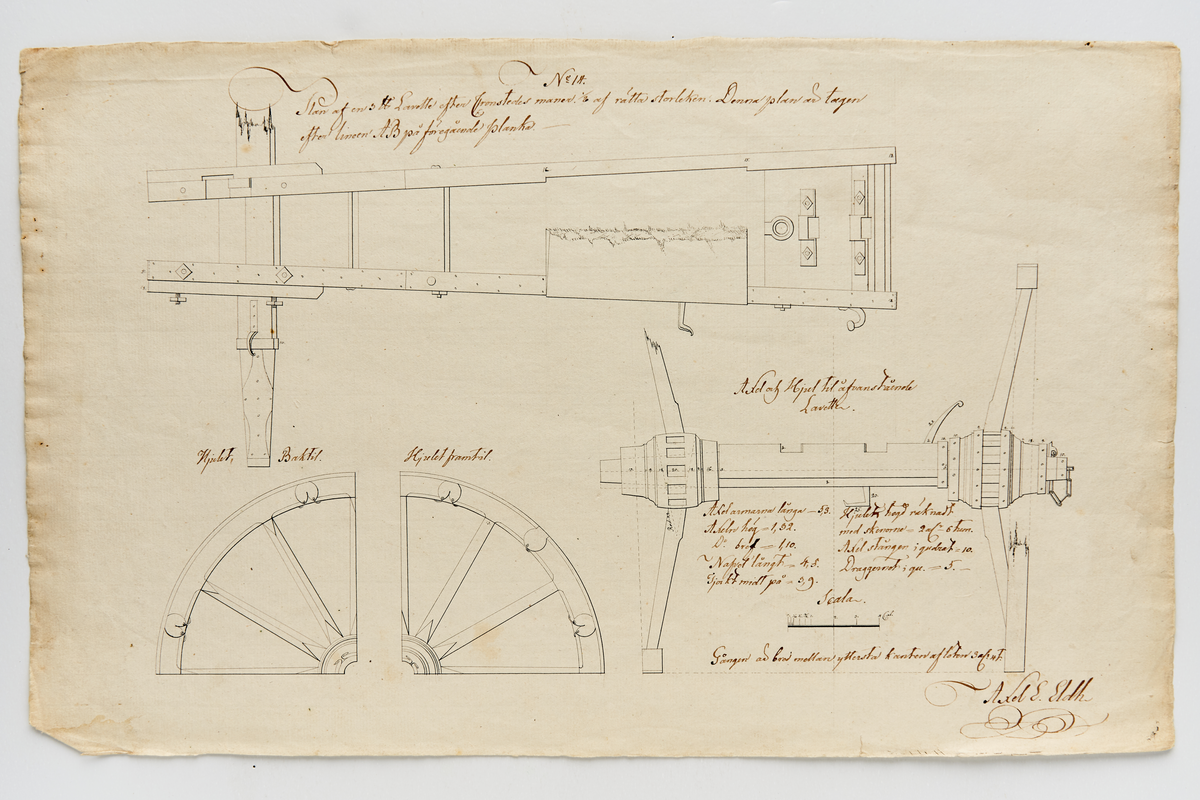 No 14.
Plan af en 3 ℔ Lavette efter Cronstedts maner. af rätta storleken. Denna plan är tagen
efter lineen AB på föregående planka.
Axel och Hjul til åfvanstående
Lavette.
Hjulet, Baktil.
Hjulet framtil.
Axel armarne långa = 3,3.
Axeln hög = 1,32.
Do bred = 1,10.
Nafvet långt = 4,5.
Tjockt midt på = 3,9.
Hjulets högd räknadt
med skenorne = 2 al: 6 tum.
Axel stången i quadrat = 10.
Draggornet i qu. = 5.
Scala.
Gången är bred mellan yttersta kanten af löten
Axel E. Eldh